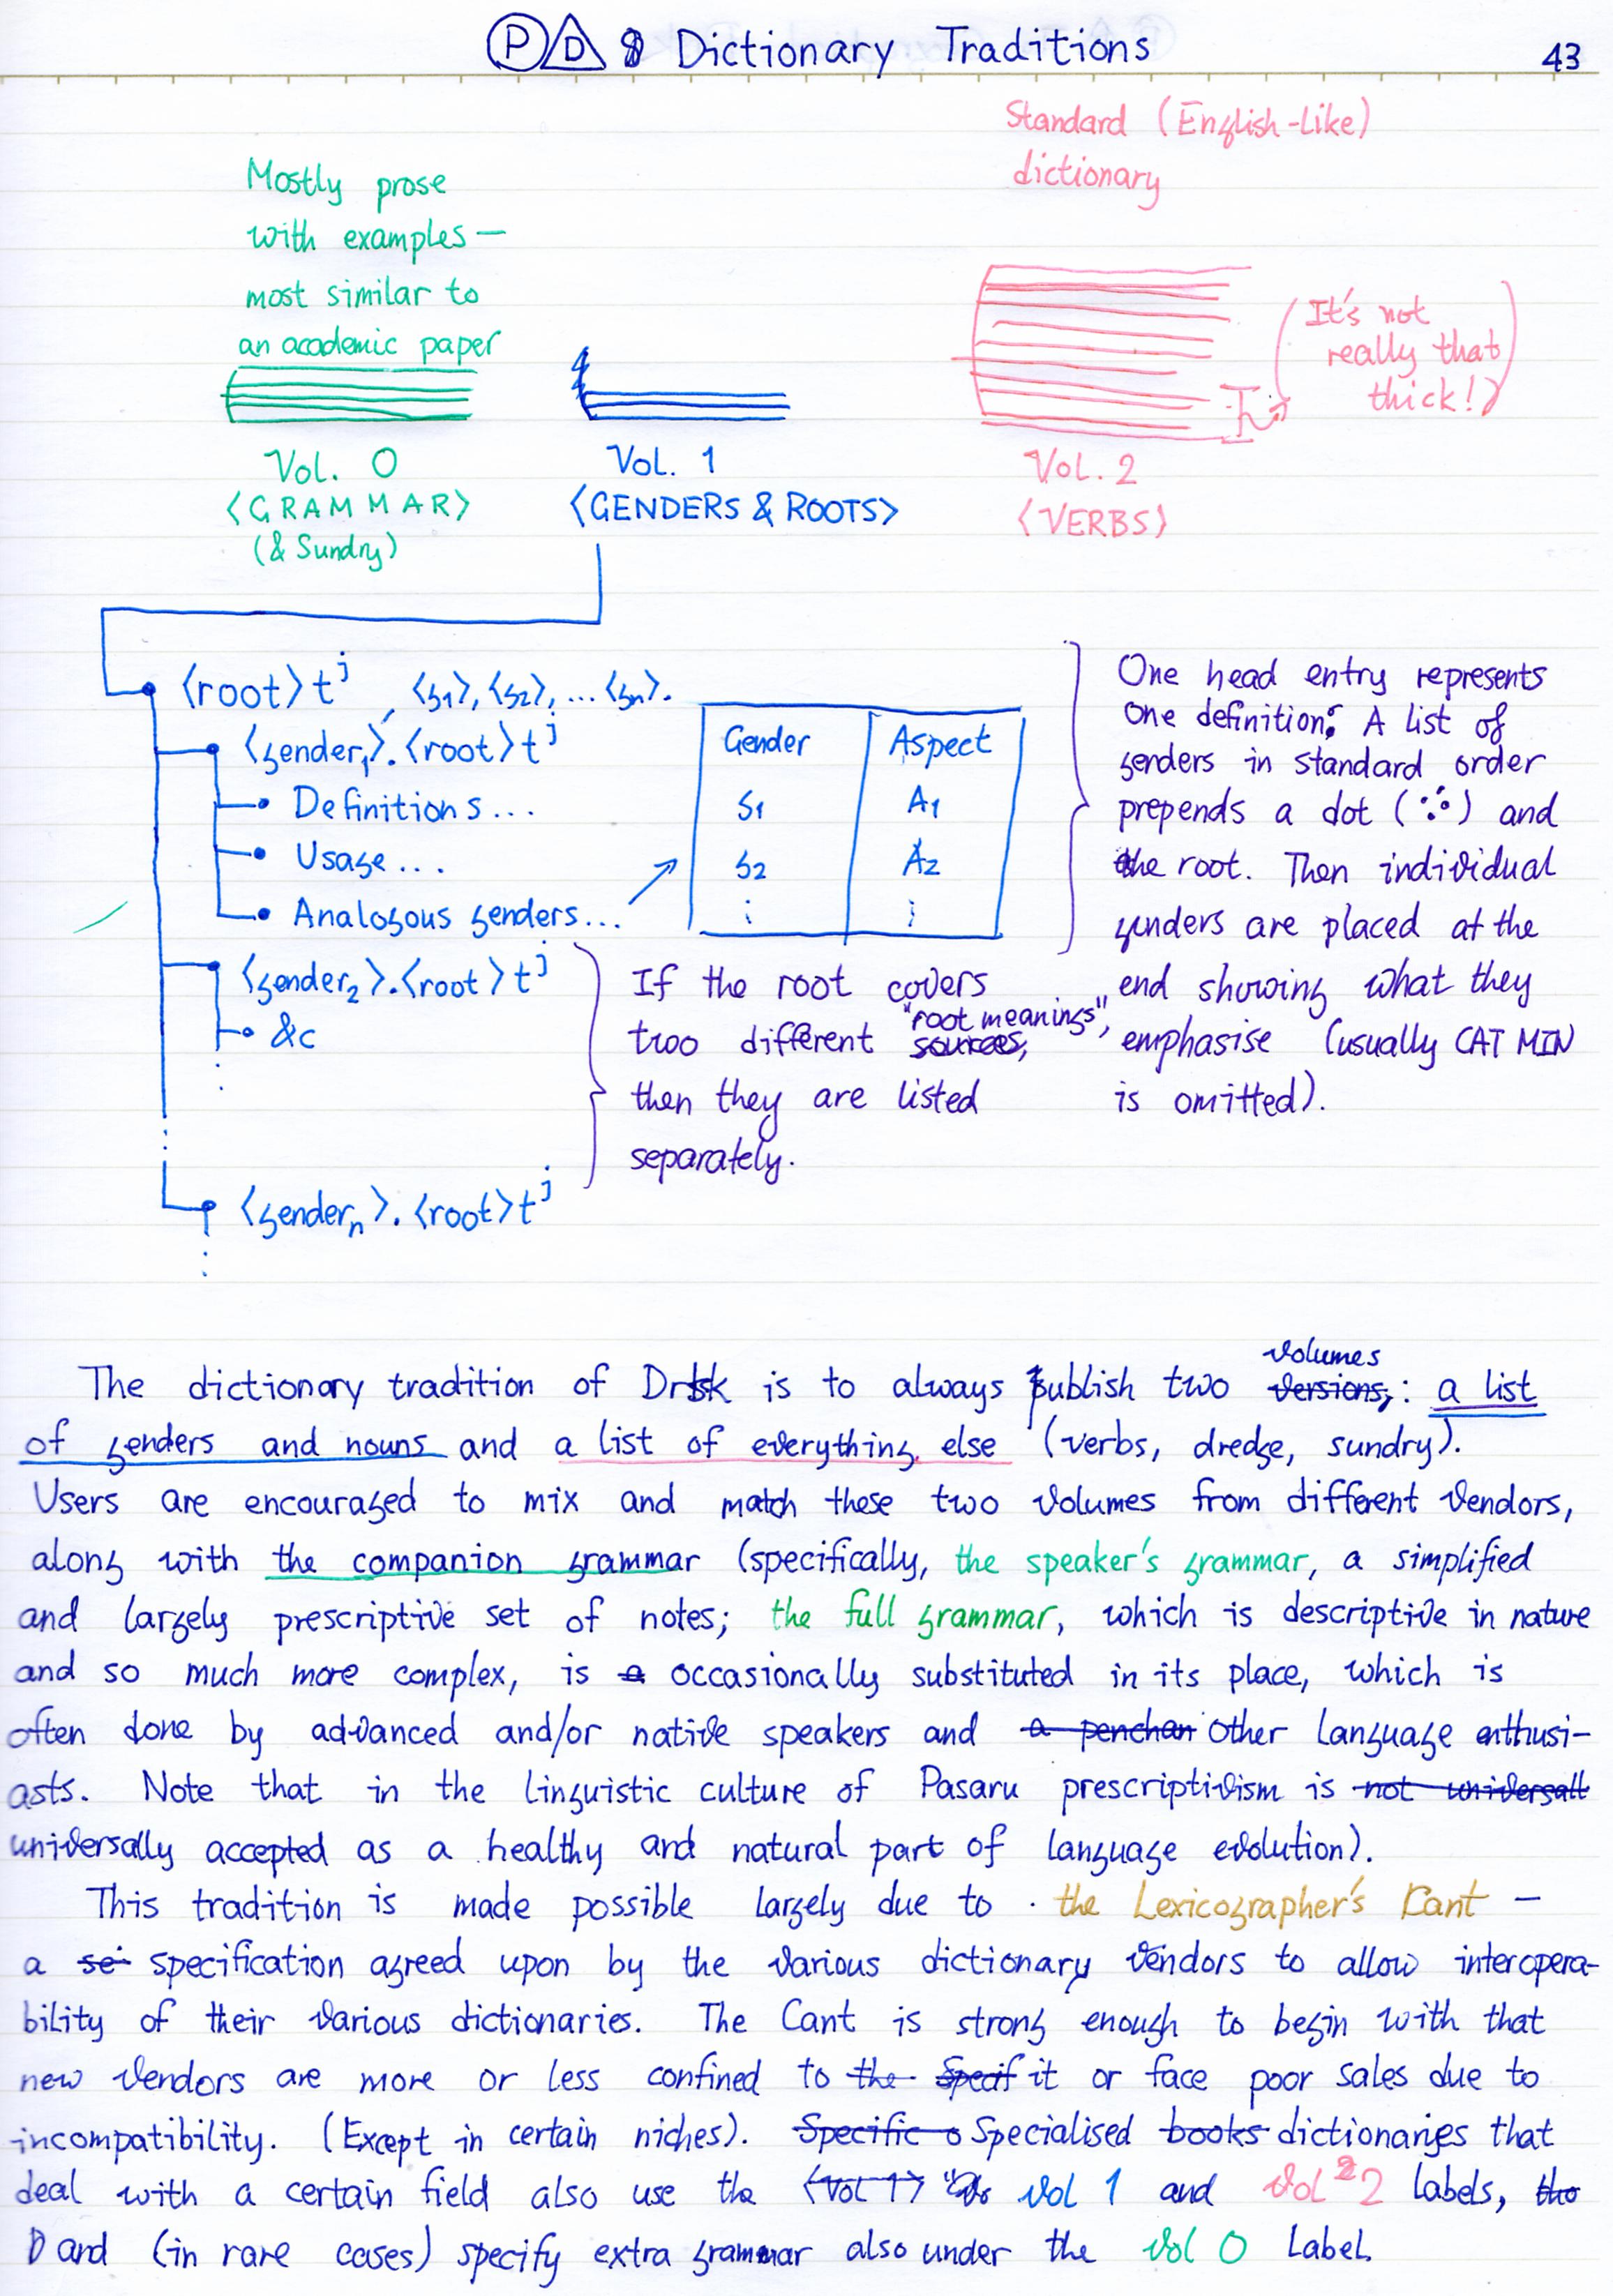 P D 8 Dictionary Traditions 43
Standard (English-like)
dictionary
Mostly prose
with examples —
most similar to
an academic paper
(It's not
really that
thick!)
Vol. 0
<GRAMMAR>
(& Sundry)
Vol. 1
<GENDERS & ROOTS>
Vol. 2
<VERBS>
<root>tʲ, <g1>, <g2>, ... <gn>.
<gender1>.<root>tʲ
Definitions...
Usage...
Analogous genders...
Gender Aspect
g1 A1
g2 A2
⋮ ⋮
<gender2>.<root>tʲ
&c
<gendern>.<root>tʲ
If the root covers
two different sources, "root meanings",
then they are listed
separately.
One head entry represents
one definition: A list of
genders in standard order
prepends a dot (∵) and
the root. Then individual
genders are placed at the
end showing what they
emphasise (usually CAT MIN
is omitted).
The dictionary tradition of Drtsk is to always publish two versions, volumes: a list
of genders and nouns and a list of everything else (verbs, dredge, sundry).
Users are encouraged to mix and match these two volumes from different vendors,
along with the companion grammar (specifically, the speaker's grammar, a simplified
and largely prescriptive set of notes; the full grammar, which is descriptive in nature
and so much more complex, is a occasionally substituted in its place, which is
often done by advanced and/or native speakers and a penchan other language enthusi-
asts. Note that in the linguistic culture of Pasaru prescriptivism is not universall
universally accepted as a healthy and natural part of language evolution).
This tradition is made possible largely due to the Lexicographer's Cant —
a se specification agreed upon by the various dictionary vendors to allow interopera-
bility of their various dictionaries. The Cant is strong enough to begin with that
new vendors are more or less confined to the Specif it or face poor sales due to
incompatibility. (Except in certain niches). Specific o Specialised books dictionaries that
deal with a certain field also use the <Vol 1> vol 1 and vol 2 labels, the
and (in rare cases) specify extra grammar also under the vol 0 label.